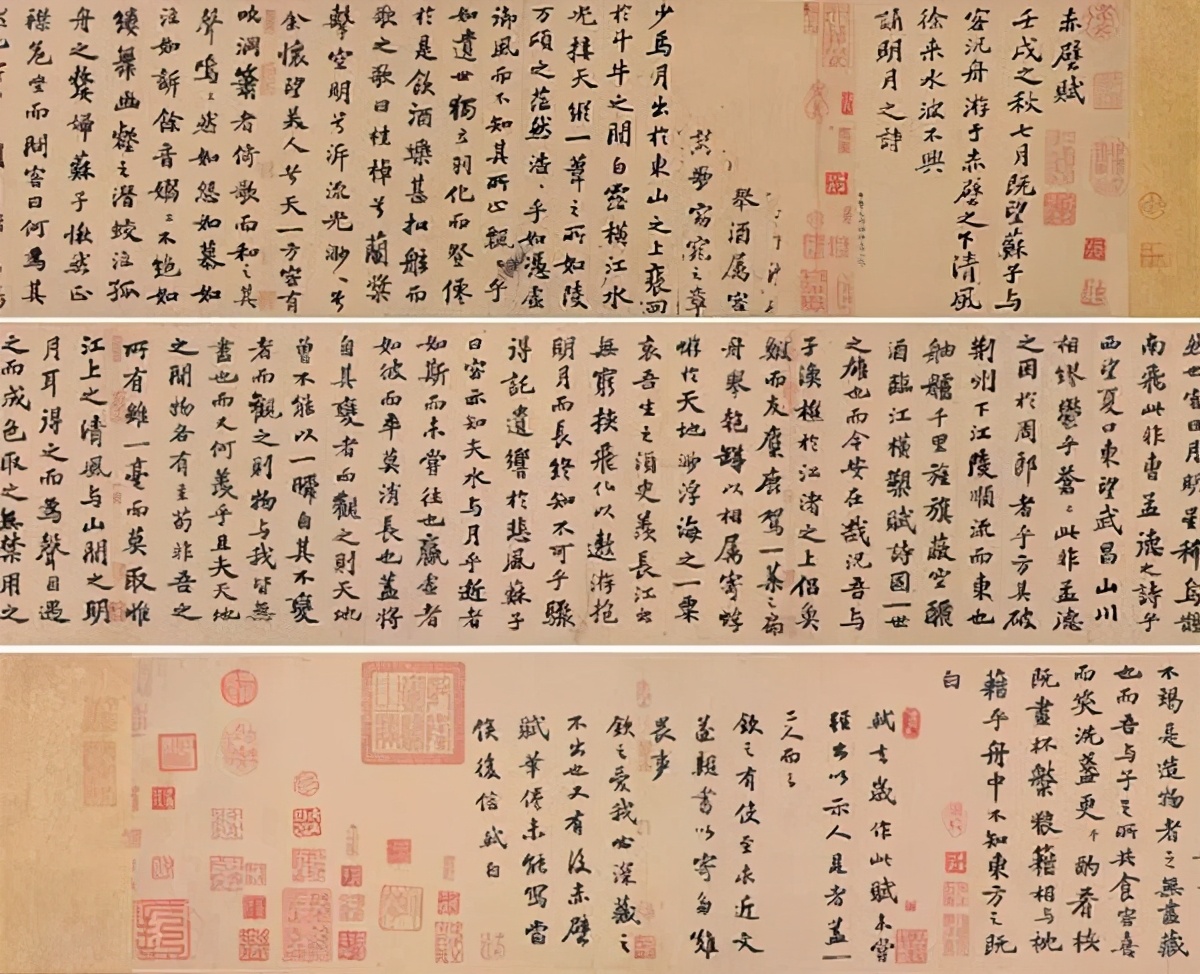 赤壁賦
壬戌之秋七月既望蘇子与
客汎舟游于赤壁之下清風
徐来水波不興
舉酒属客
誦明月之詩
歌窈窕之章
少焉月出於東山之上裵回
於斗牛之間白露横江水
光接天縱一葦之所如陵
万頃之茫然浩〻乎如憑虚
御風而不知其所止飄〻乎
如遺世獨立羽化而登僊
於是飲酒樂甚扣舷而
歌之歌曰桂棹兮蘭槳
擊空明兮泝流光渺〻兮
余懷望美人兮天一方客有
吹洞簫者倚歌而和之其
聲嗚〻然如怨如慕如
泣如訴餘音嫋〻不絶如
縷舞幽壑之潛蛟泣孤
舟之嫠婦蘇子愀然正
襟危坐而問客曰何為其
然也客曰月明星稀烏鵲
南飛此非曹孟德之詩乎
西望夏口東望武昌山川
相繆鬱乎蒼〻此非孟德
之困於周郎者乎方其破
荆州下江陵順流而東也
舳艫千里旌旗蔽空釃
酒臨江横槊賦詩固一世
之雄也而今安在哉况吾与
子漁樵於江渚之上侣魚
鰕而友麋鹿駕一葉之扁
舟舉匏罇以相属寄蜉
蝣於天地渺浮海之一粟
哀吾生之須臾羡長江之
無窮挾飛仙以遨游抱
明月而長終知不可乎驟
得託遺響於悲風蘇子
曰客亦知夫水与月乎逝者
如斯而未嘗往也贏虚者
如彼而卒莫消長也盖將
自其變者而觀之則天地
曾不能以一瞬自其不變
者而觀之則物与我皆無
盡也而又何羡乎且夫天地
之間物各有主苟非吾之
所有雖一毫而莫取惟
江上之清風与山間之明
月耳得之而為聲目遇
之而成色取之無禁用之
不竭是造物者之無盡藏
也而吾与子之所共食客喜
而笑洗盞更酌肴核
既盡杯盤狼籍相与枕
藉乎舟中不知東方之既
白
軾去歲作此賦未嘗
輕出以示人見者盖一
二人而已
欽之有使至求近文
遂親書以寄多難
畏事
欽之愛我必深藏之
不出也又有後赤壁
賦筆倦未能寫當
俟後信軾白